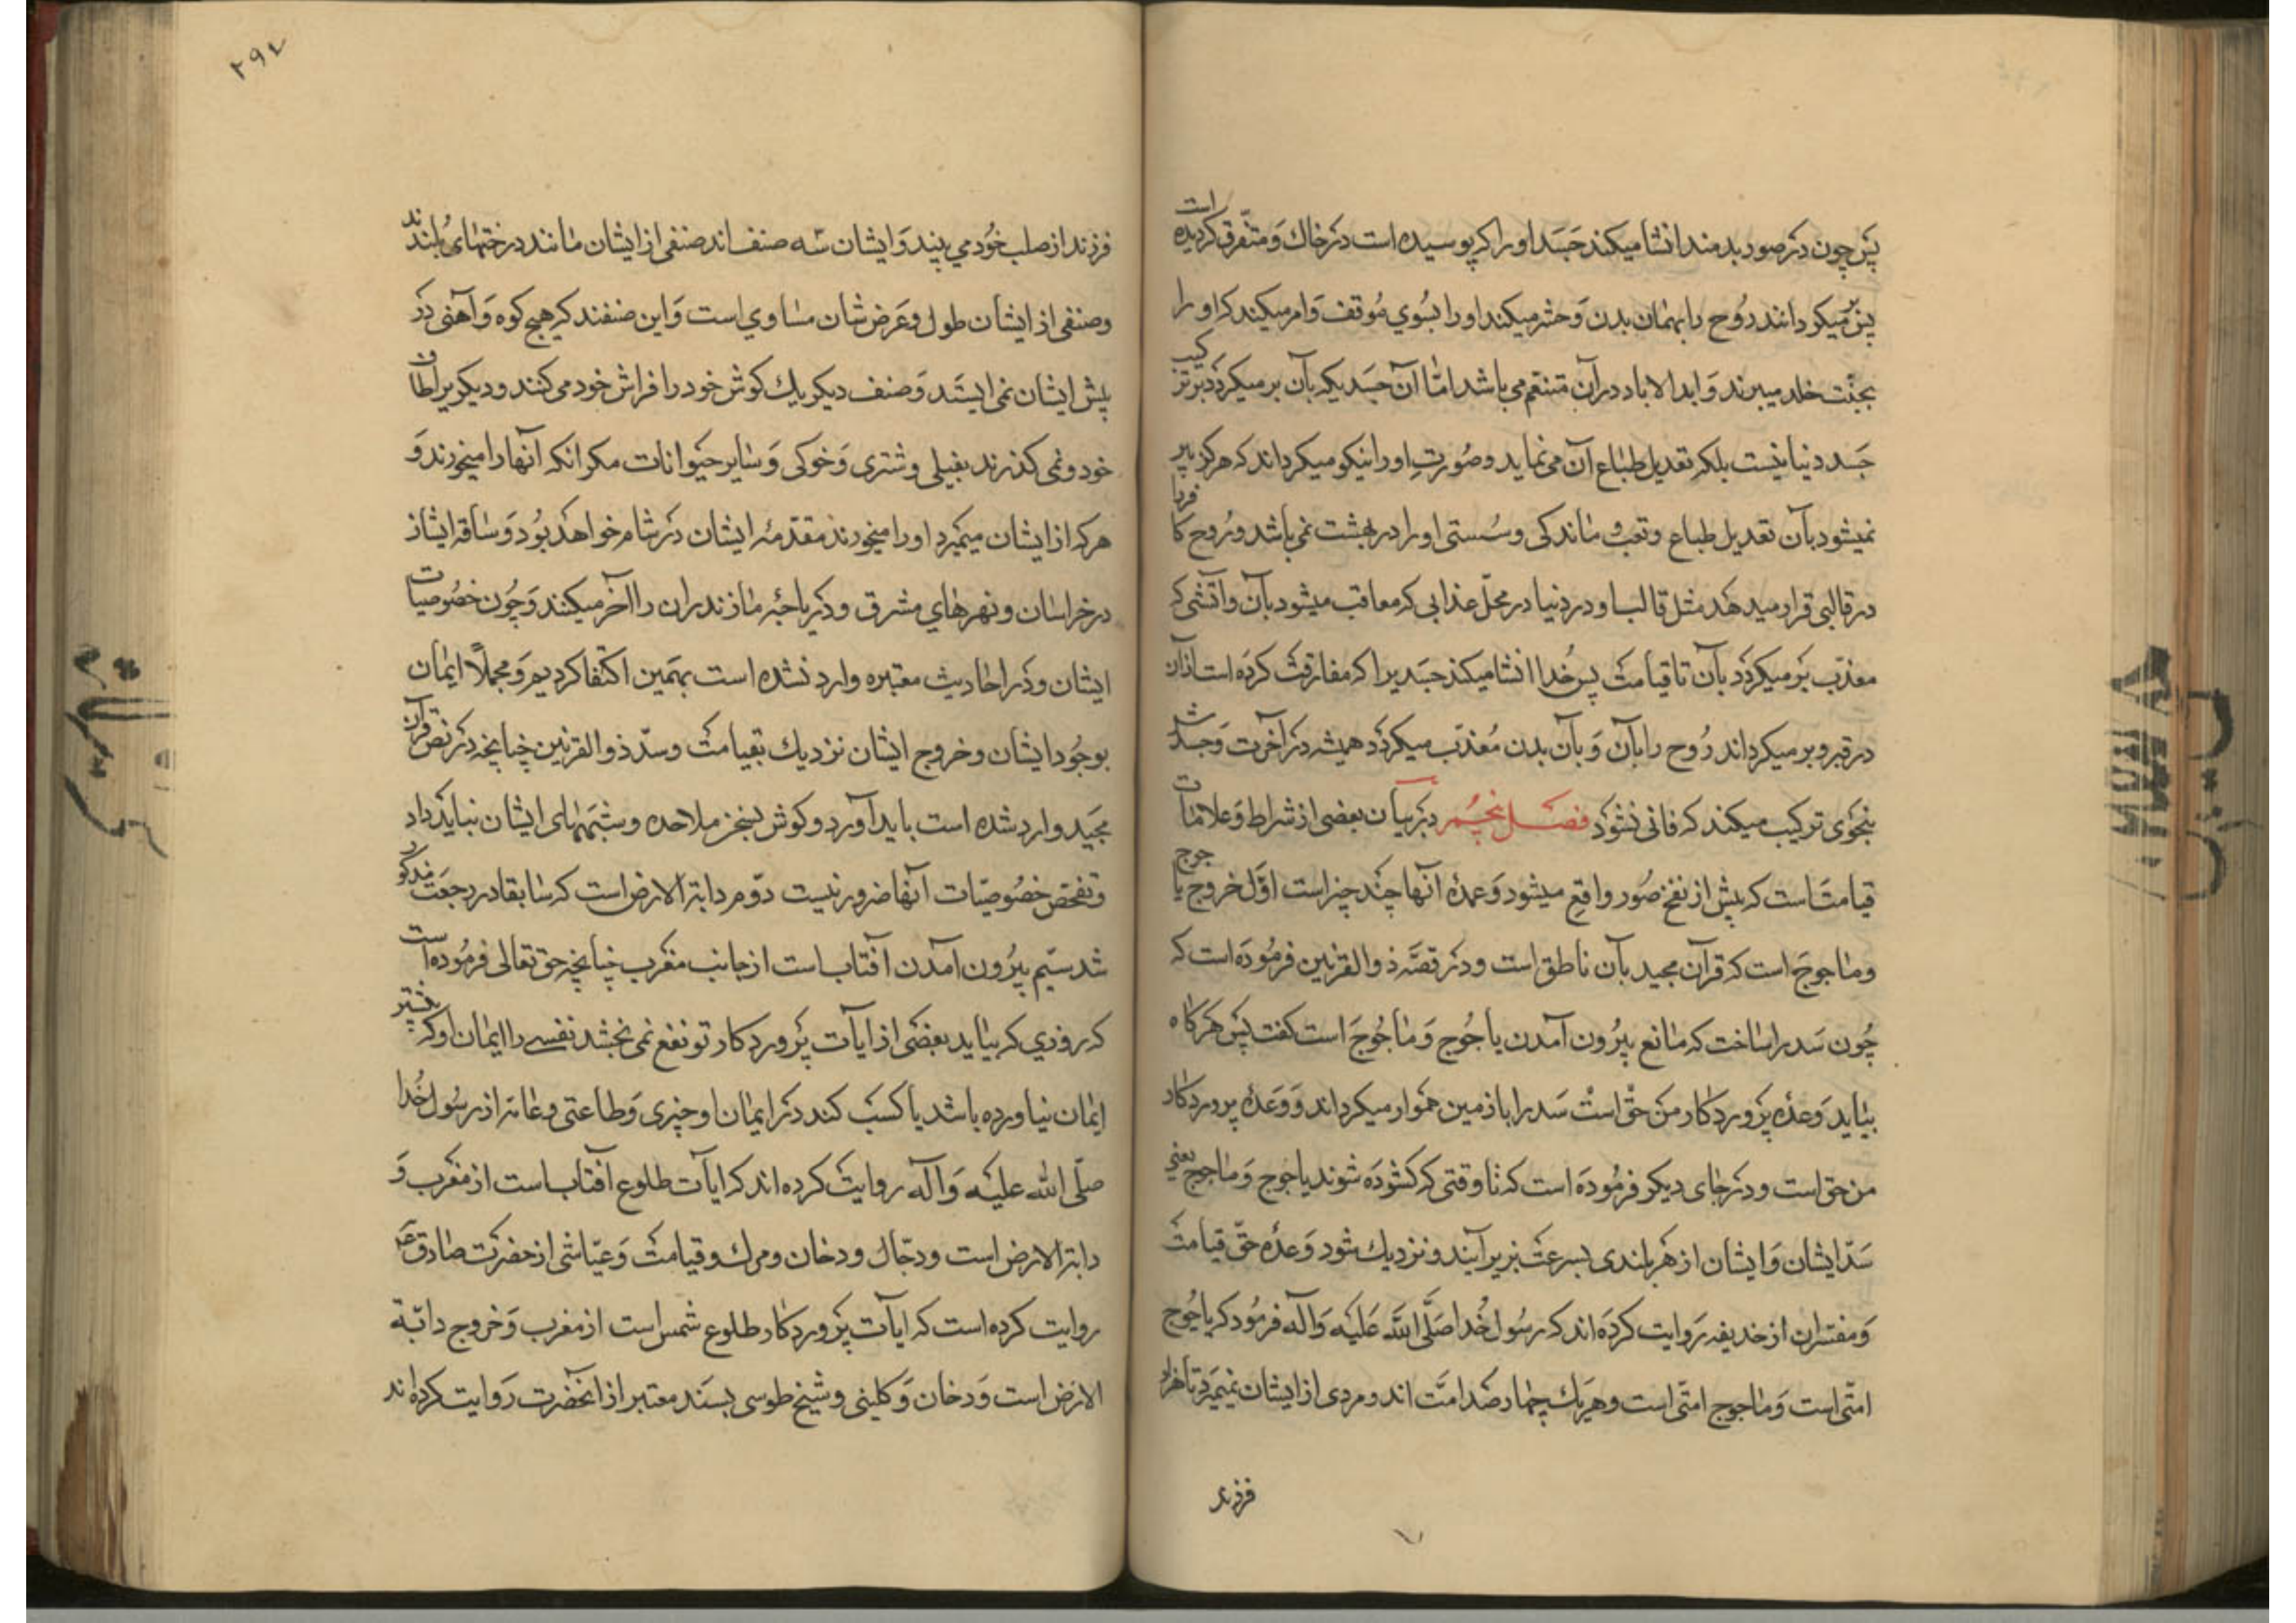 پس چون در صور بدمند انشا میکند جسد او را که پوسیده است در خاک و متفرق گردیده است
پس میگردانند روح را بهمان بدن و حشر میکند او را بسوی موقف و امر میکند که او را
بجنت خلد میبرند و ابدالاباد در آن متنعم می باشد اما آن جسدیکه بآن برمیگردد بترکیب
جسد دنیا نیست بلکه تعدیل طباع آن می نماید و صورت او را نیکو میگرداند که هرگز پیر
نمیشود بآن تعدیل طباع و تعب و ماندگی و سستی او را در بهشت نمی باشد و روح کافر را
در قالبی قرار میدهد مثل قالب او در دنیا در محل عذابی که معاقب میشود بآن و آتشی که
معذب برمیگردد بآن تا قیامت پس خدا انشا میکند جسدیرا که مفارقت کرده است از آن
در قبر و برمیگرداند روح را بآن و بآن بدن معذب میگردد همیشه در آخرت و جسدش
بنحوی ترکیب میکند که فانی نشود فصل پنجم در بیان بعضی از شراط و علامات
قیامت است که پیش از نفخ صور واقع میشود و عمده آنها چند چیز است اول خروج یاجوج
و ماجوج است که قرآن مجید بآن ناطق است و در قصه ذوالقرنین فرموده است که
چون سد را ساخت که مانع بیرون آمدن یاجوج و ماجوج است گفت پس هرگاه
بیاید وعده پروردگار من حق است سد را با زمین هموار میگرداند و وعده پروردگار
من حق است و در جای دیگر فرموده است که تا وقتی که گشوده شوند یاجوج و ماجوج یعنی
سد ایشان و ایشان از هر بلندی بسرعت بزیر آیند و نزدیک شود وعده حق قیامت
و مفسران از حذیفه روایت کرده اند که رسول خدا صلی الله علیه و آله فرمود که یاجوج
امتی است و ماجوج امتی است و هریک چهارصد امت اند و مردی از ایشان نمیمیرد تا هزار
فرزند
۲۹۴
فرزند از صلب خود می بیند و ایشان سه صنف اند صنفی از ایشان مانند درختهای بلندند
و صنفی از ایشان طول و عرض شان مساوی است و این صنفند که هیچ کوه و آهنی در
پیش ایشان نمی ایستد و صنف دیگر یک گوش خود را فراش خود می کنند و دیگریرا طاف
خود و نمی گذرند بفیلی و شتری و خوکی و سایر حیوانات مگر آنکه آنها را میخورند و
هرکه از ایشان میمیرد او را میخورند مقدمه ایشان در شام خواهد بود و ساقه ایشان
در خراسان و نهرهای مشرق و دریاچه مازندران را آخر میکنند و چون خصوصیات
ایشان و در احادیث معتبره وارد نشده است بهمین اکتفا کردیم و مجملاً ایمان
بوجود ایشان و خروج ایشان نزدیک بقیامت و سد ذوالقرنین چنانچه در نص قرآن
مجید وارد شده است باید آورد و گوش بسخن ملاحده و شبههای ایشان نباید داد
و تفحص خصوصیات آنها ضرور نیست دوم دابة الارض است که سابقا در رجعت مذکور
شد سیم بیرون آمدن آفتاب است از جانب مغرب چنانچه حق تعالی فرموده است
که روزی که بیاید بعضی از آیات پروردگار تو نفع نمی بخشد نفسی را ایمان او که پیشتر
ایمان نیاورده باشد یا کسب کند در ایمان او چیزی و طاعتی و عامه از رسول خدا
صلی الله علیه و آله روایت کرده اند که آیات طلوع آفتاب است از مغرب و
دابة الارض است و دجال و دخان و مرگ و قیامت و عیاشی از حضرت صادق ع
روایت کرده است که آیات پروردگار طلوع شمس است از مغرب و خروج دابة
الارض است و دخان و کلینی و شیخ طوسی بسند معتبر از آنحضرت روایت کرده اند